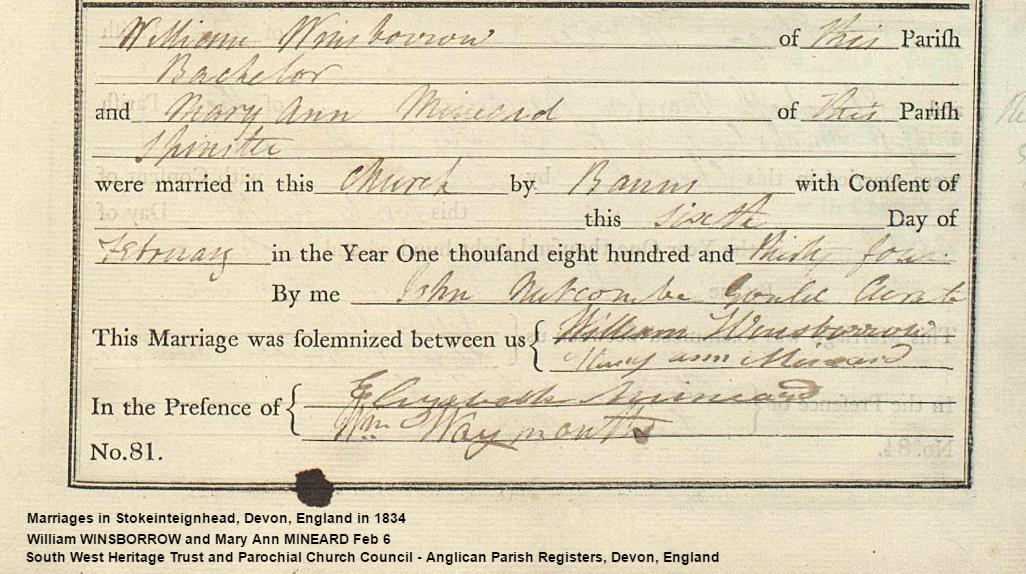 William Winsborrow of this Pariſh
Bachelor
and Mary Ann Mineard of this Pariſh
Spinster
were married in this Church by Banns with Conſent of
this Sixth Day of
February in the Year One thouſand eight hundred and thirty four
By me John Nutcombe Gould Curate
This Marriage was ſolemnized between us { William Winsborrow
Mary ann Mineard
In the Preſence of { Elizabeth Mineard
Wm Waymouth
No.81.
Marriages in Stokeinteignhead, Devon, England in 1834
William WINSBORROW and Mary Ann MINEARD Feb 6
South West Heritage Trust and Parochial Church Council - Anglican Parish Registers, Devon, England